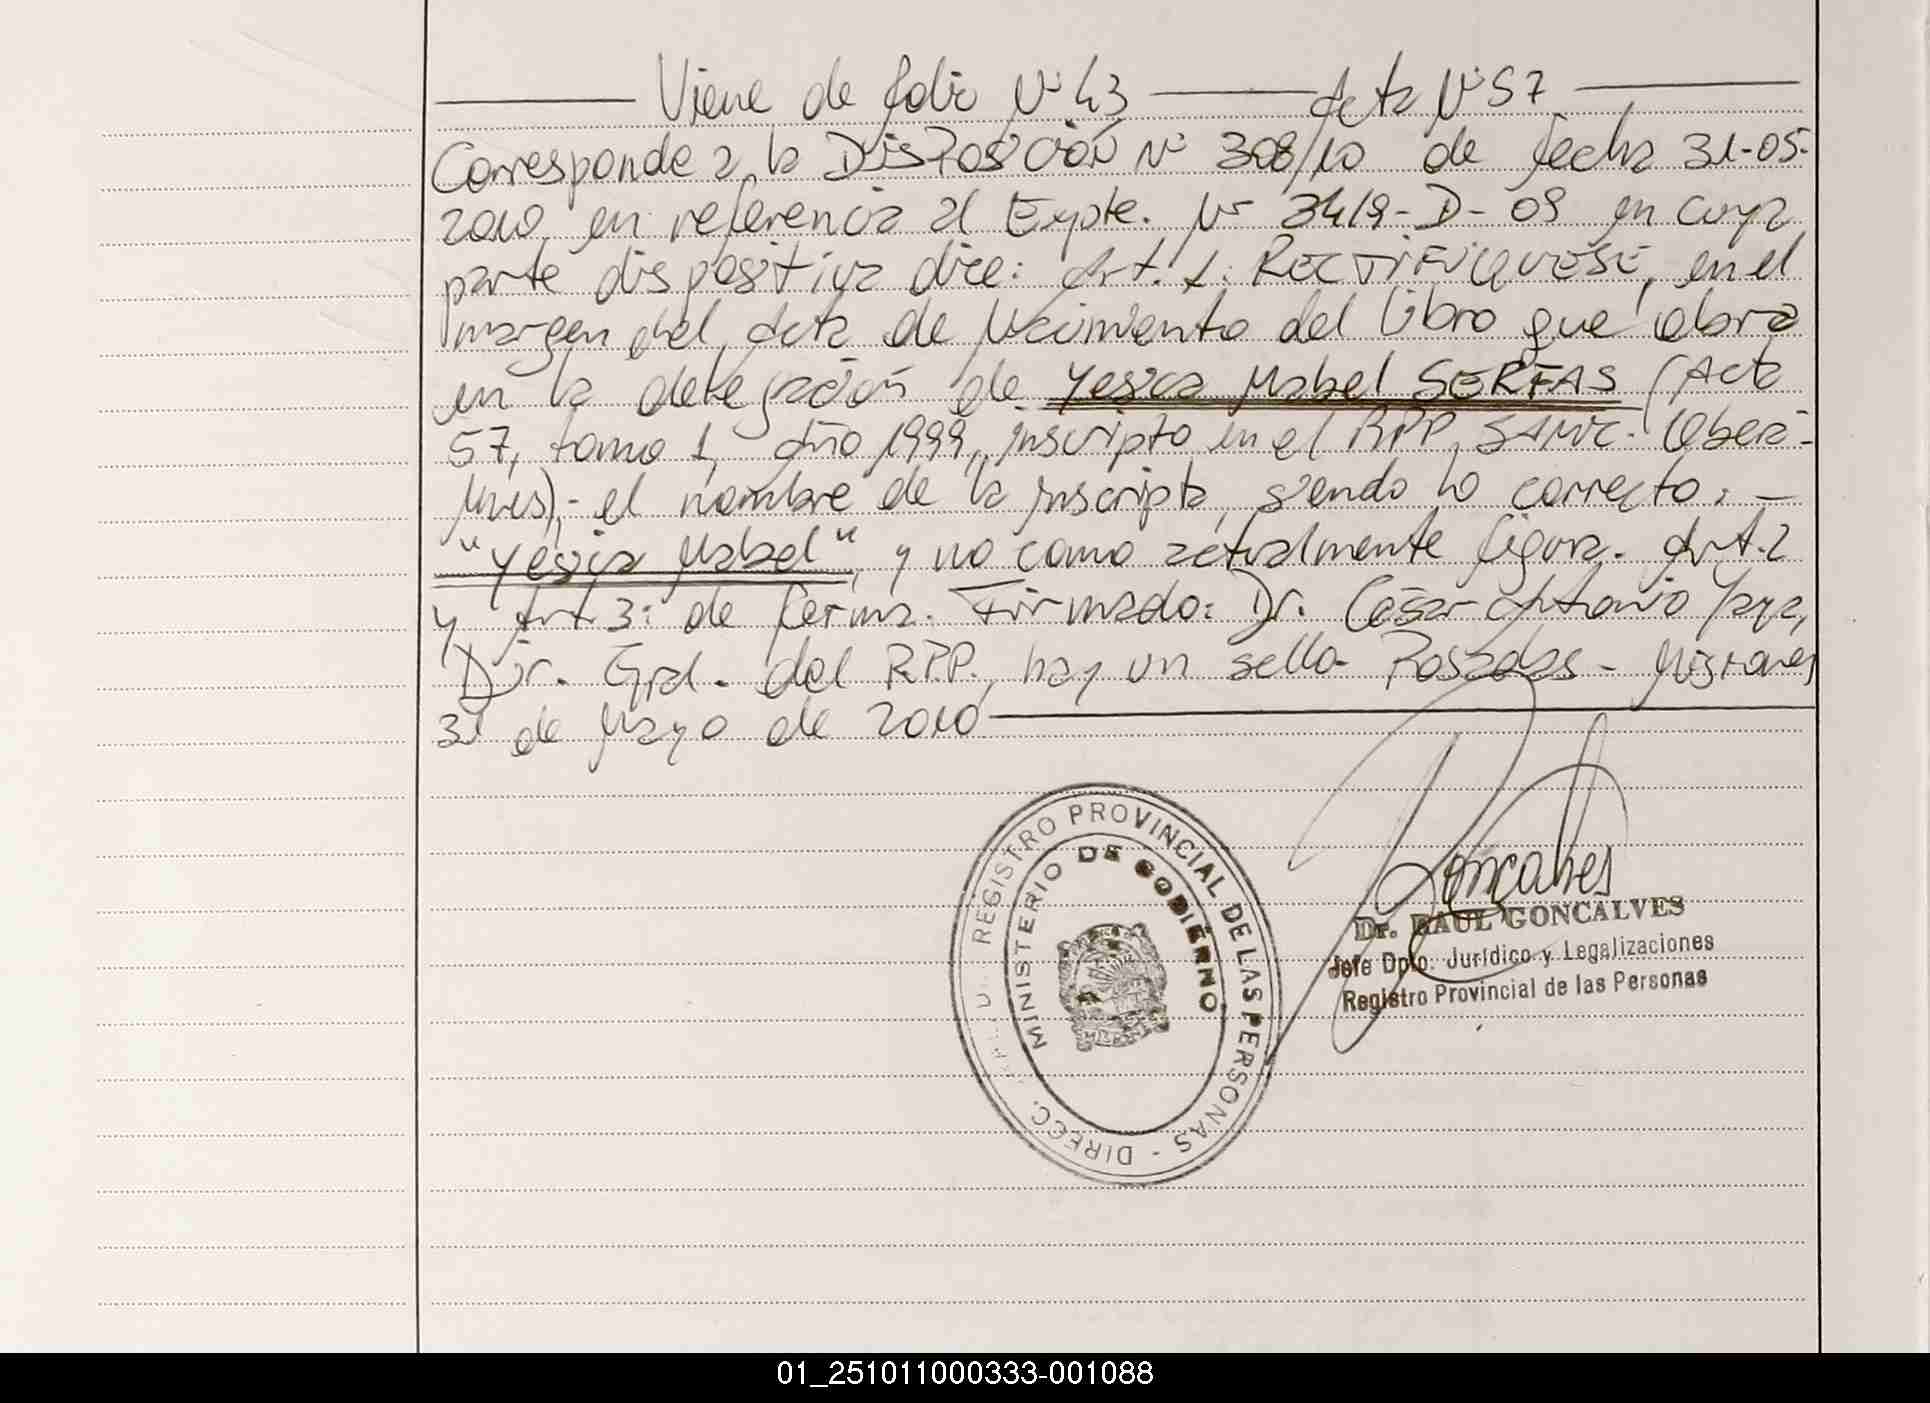 Viene de folio Nº 43 — Acta Nº 57 —
Corresponde a la DISPOSICIÓN Nº 308/10 de fecha 31-05-
2010, en referencia al Expte. Nº 3419-D-09 en cuya
parte dispositiva dice: Art. 1: RECTIFIQUESE, en el
margen del Acta de Nacimiento del libro que obra
en la delegación de Yesica Mabel SERFAS (Acta
57, tomo 1, Año 1999, inscripto en el RPP, SAMIC. Oberá-
Mnes),- el nombre de la inscripta, siendo lo correcto: —
"Yesica Mabel", y no como actualmente figura. Art. 2
y Art 3: de forma. Firmado: Dr. César Antonio Yaya,
Dir. Gral. del RPP., hay un sello- Posadas - Misiones
31 de Mayo de 2010
REGISTRO PROVINCIAL DE LAS PERSONAS - DIRECC.
MINISTERIO DE GOBIERNO
Goncalves
Dr. RAUL GONCALVES
Jefe Dpto. Jurídico y Legalizaciones
Registro Provincial de las Personas
01_251011000333-001088